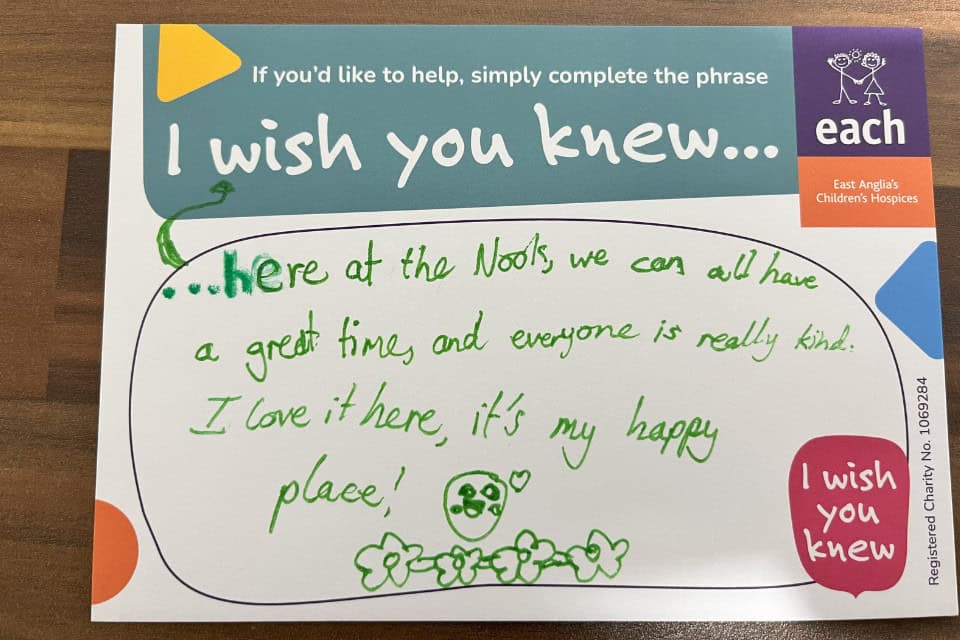 If you'd like to help, simply complete the phrase
I wish you knew...
each
East Anglia's
Children's Hospices
...here at the Nook, we can all have
a great time, and everyone is really kind.
I love it here, it's my happy
place!
I wish
you
knew
Registered Charity No. 1069284